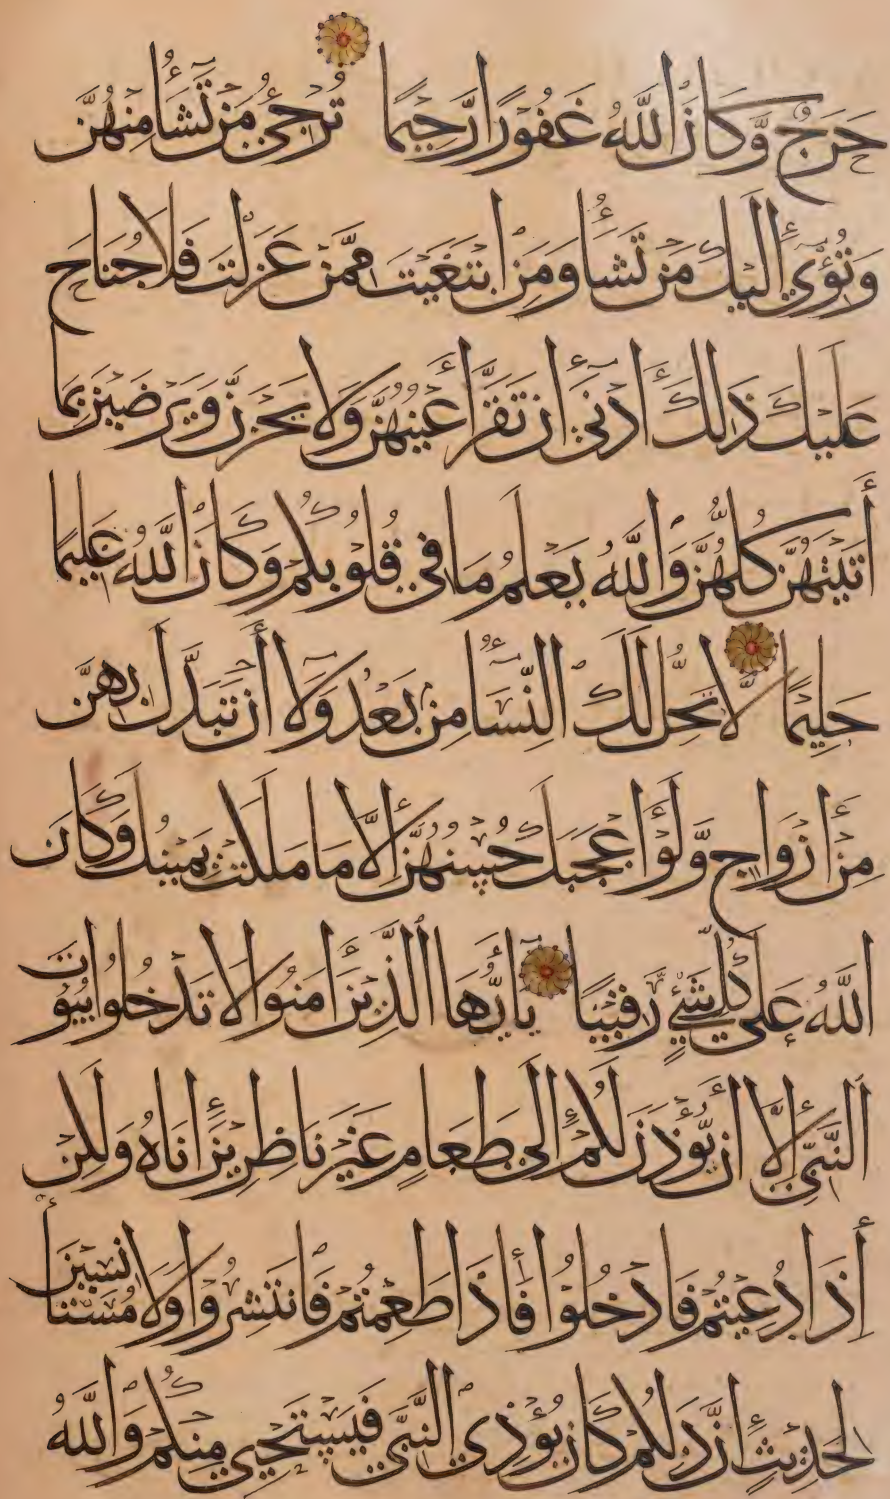 حَرَجٌ وَّكَانَ اللّٰهُ غَفُوْرًا رَّحِيْمًا تُرْجِيْ مَنْ تَشَآءُ مِنْهُنَّ
وَتُؤْيْ اِلَيْكَ مَنْ تَشَآءُ وَمَنِ ابْتَغَيْتَ مِمَّنْ عَزَلْتَ فَلَا جُنَاحَ
عَلَيْكَ ذَلِكَ اَدْنٰى اَنْ تَقَرَّ اَعْيُنُهُنَّ وَلَا يَحْزَنَّ وَيَرْضَيْنَ بِمَا
اٰتَيْتَهُنَّ كُلُّهُنَّ وَاللّٰهُ يَعْلَمُ مَا فِيْ قُلُوْبِكُمْ وَكَانَ اللّٰهُ عَلِيْمًا
حَلِيْمًا لَّا يَحِلُّ لَكَ النِّسَآءُ مِنْ بَعْدُ وَلَآ اَنْ تَبَدَّلَ بِهِنَّ
مِنْ اَزْوَاجٍ وَّلَوْ اَعْجَبَكَ حُسْنُهُنَّ اِلَّا مَا مَلَكَتْ يَمِيْنُكَ وَكَانَ
اللّٰهُ عَلٰى كُلِّ شَيْءٍ رَّقِيْبًا يٰٓاَيُّهَا الَّذِيْنَ اٰمَنُوْا لَا تَدْخُلُوْا بُيُوْتَ
النَّبِيِّ اِلَّآ اَنْ يُّؤْذَنَ لَكُمْ اِلٰى طَعَامٍ غَيْرَ نَاظِرِيْنَ اِنَاهُ وَلٰكِنْ
اِذَا دُعِيْتُمْ فَادْخُلُوْا فَاِذَا طَعِمْتُمْ فَانْتَشِرُوْا وَلَا مُسْتَأْنِسِيْنَ
لِحَدِيْثٍ اِنَّ ذٰلِكُمْ كَانَ يُؤْذِي النَّبِيَّ فَيَسْتَحْيِيْ مِنْكُمْ وَاللّٰهُ